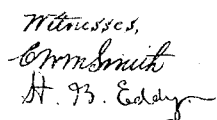 Witnesses,
E Wm Smith
H. B. Eddy.